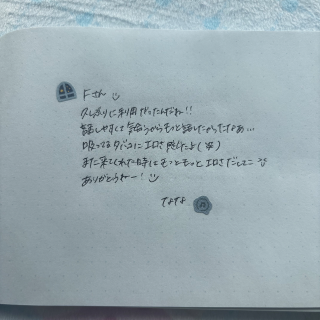 Fさん
久しぶりに利用だったんだね!!
話しやすくて気合うからもっと話したかったなぁ...
吸ってるタバコにエロさ感じたよ(笑)
また来てくれた時にもっともっとエロさだしてこ
ありがとうねー!
ななな